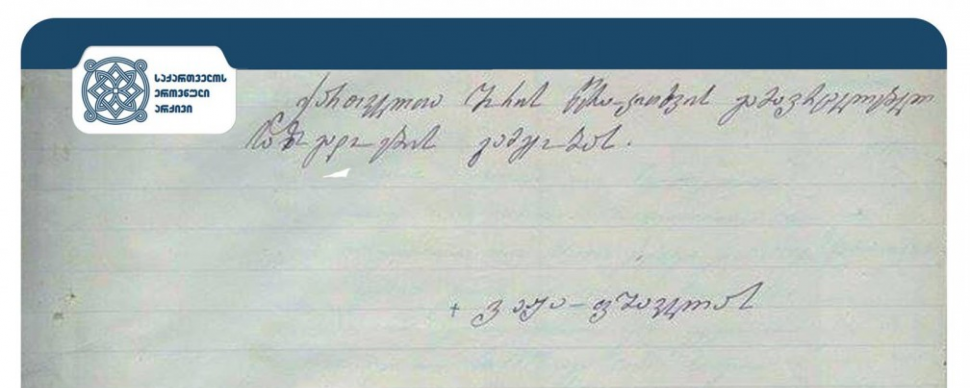 საქართველოს
ეროვნული
არქივი
ქართველთა შორის წერა-კითხვის გამავრცელებელი
საზოგადოების გამგეობას.
+ ვაჟა-ფშაველას